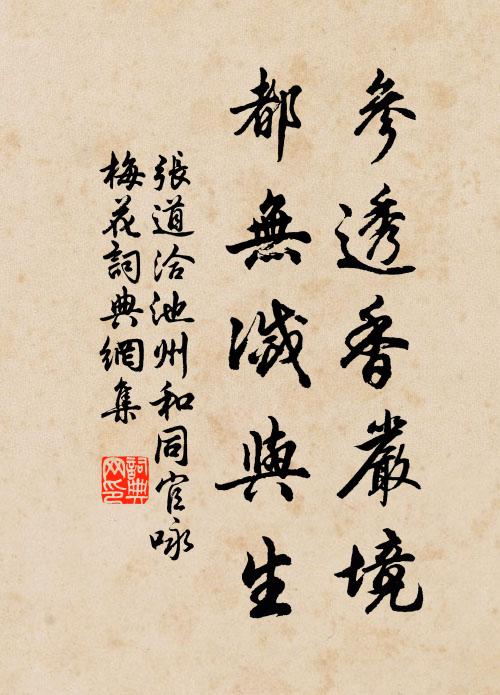 參透香嚴境
都無滅與生
張道洽池州和同官咏
梅花詞典網集
詞典網印